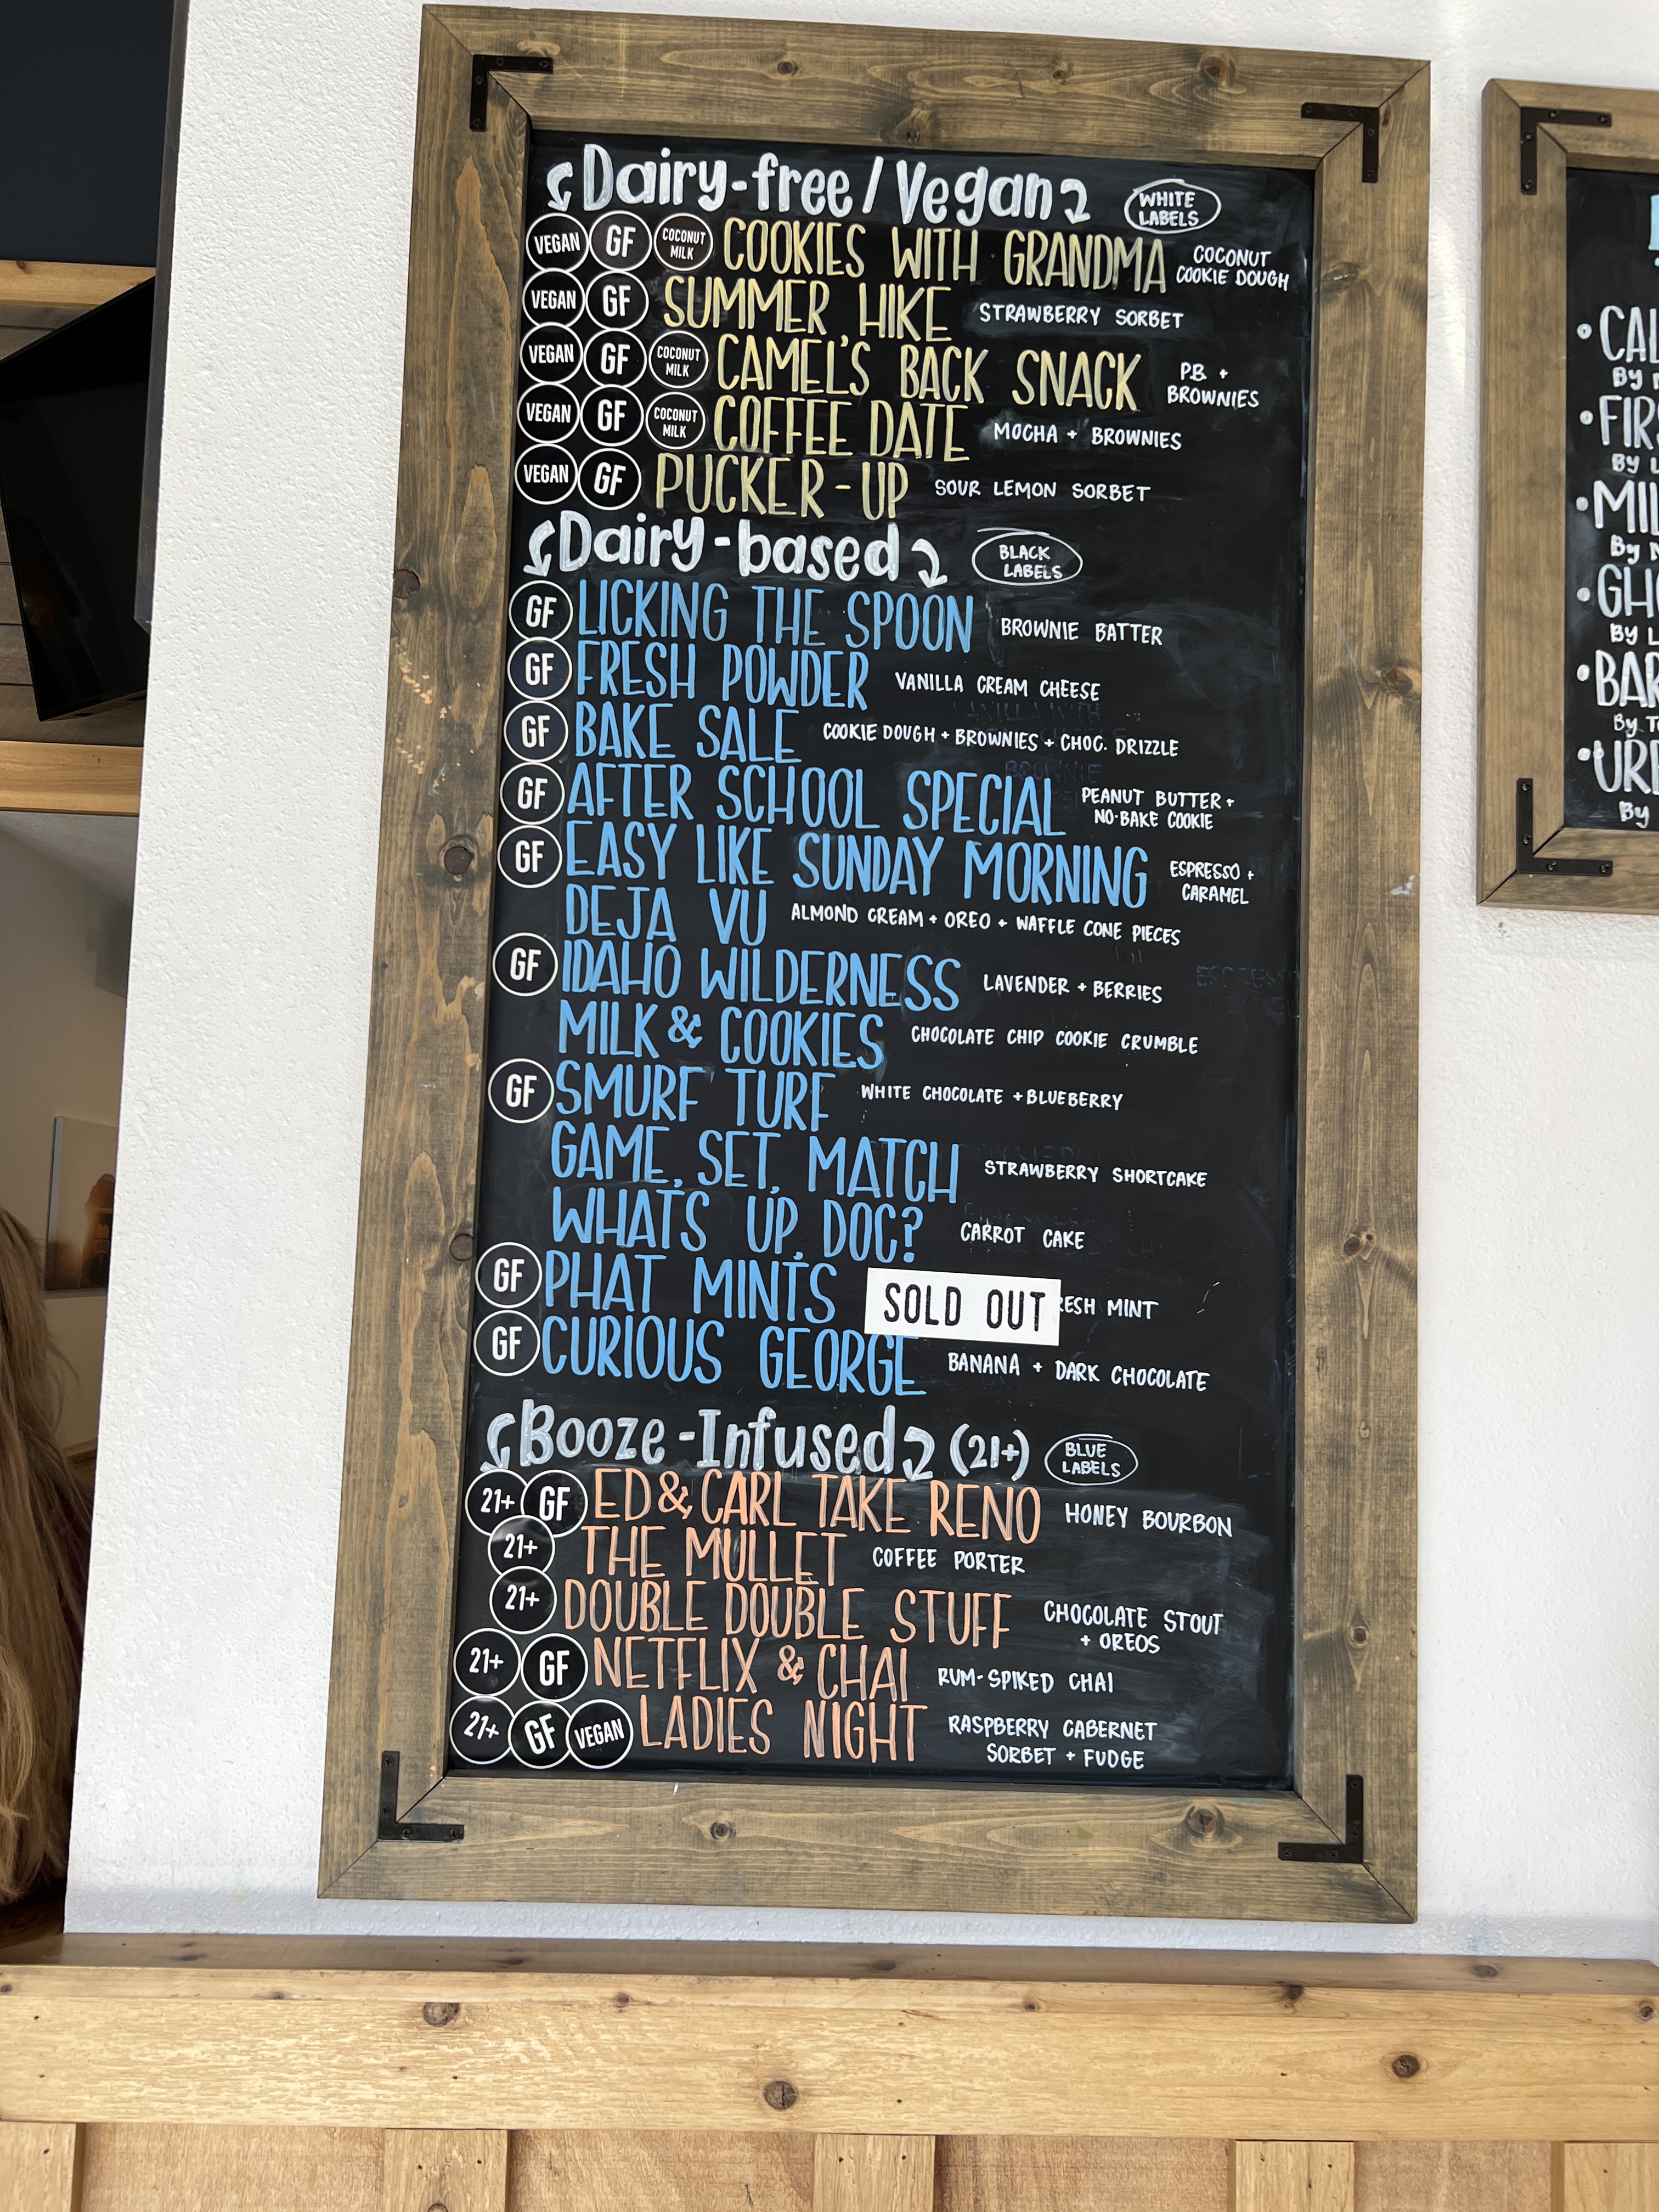 Dairy-free / Vegan WHITE LABELS
VEGAN GF COCONUT MILK COOKIES WITH GRANDMA COCONUT COOKIE DOUGH
VEGAN GF SUMMER HIKE STRAWBERRY SORBET
VEGAN GF COCONUT MILK CAMEL'S BACK SNACK P.B. + BROWNIES
VEGAN GF COCONUT MILK COFFEE DATE MOCHA + BROWNIES
VEGAN GF PUCKER-UP SOUR LEMON SORBET
Dairy-based BLACK LABELS
GF LICKING THE SPOON BROWNIE BATTER
GF FRESH POWDER VANILLA CREAM CHEESE
GF BAKE SALE COOKIE DOUGH + BROWNIES + CHOC. DRIZZLE
GF AFTER SCHOOL SPECIAL PEANUT BUTTER + NO-BAKE COOKIE
GF EASY LIKE SUNDAY MORNING ESPRESSO + CARAMEL
DEJA VU ALMOND CREAM + OREO + WAFFLE CONE PIECES
GF IDAHO WILDERNESS LAVENDER + BERRIES
MILK & COOKIES CHOCOLATE CHIP COOKIE CRUMBLE
GF SMURF TURF WHITE CHOCOLATE + BLUEBERRY
GAME, SET, MATCH STRAWBERRY SHORTCAKE
WHAT'S UP, DOC? CARROT CAKE
GF PHAT MINTS SOLD OUT RESH MINT
GF CURIOUS GEORGE BANANA + DARK CHOCOLATE
Booze-Infused (21+) BLUE LABELS
21+ GF ED & CARL TAKE RENO HONEY BOURBON
21+ THE MULLET COFFEE PORTER
21+ DOUBLE DOUBLE STUFF CHOCOLATE STOUT + OREOS
21+ GF NETFLIX & CHAI RUM-SPIKED CHAI
21+ GF VEGAN LADIES NIGHT RASPBERRY CABERNET SORBET + FUDGE
•CAL
By
•FIRS
By L
•MIL
By
•GHO
By L
•BAR
By To
•URB
By